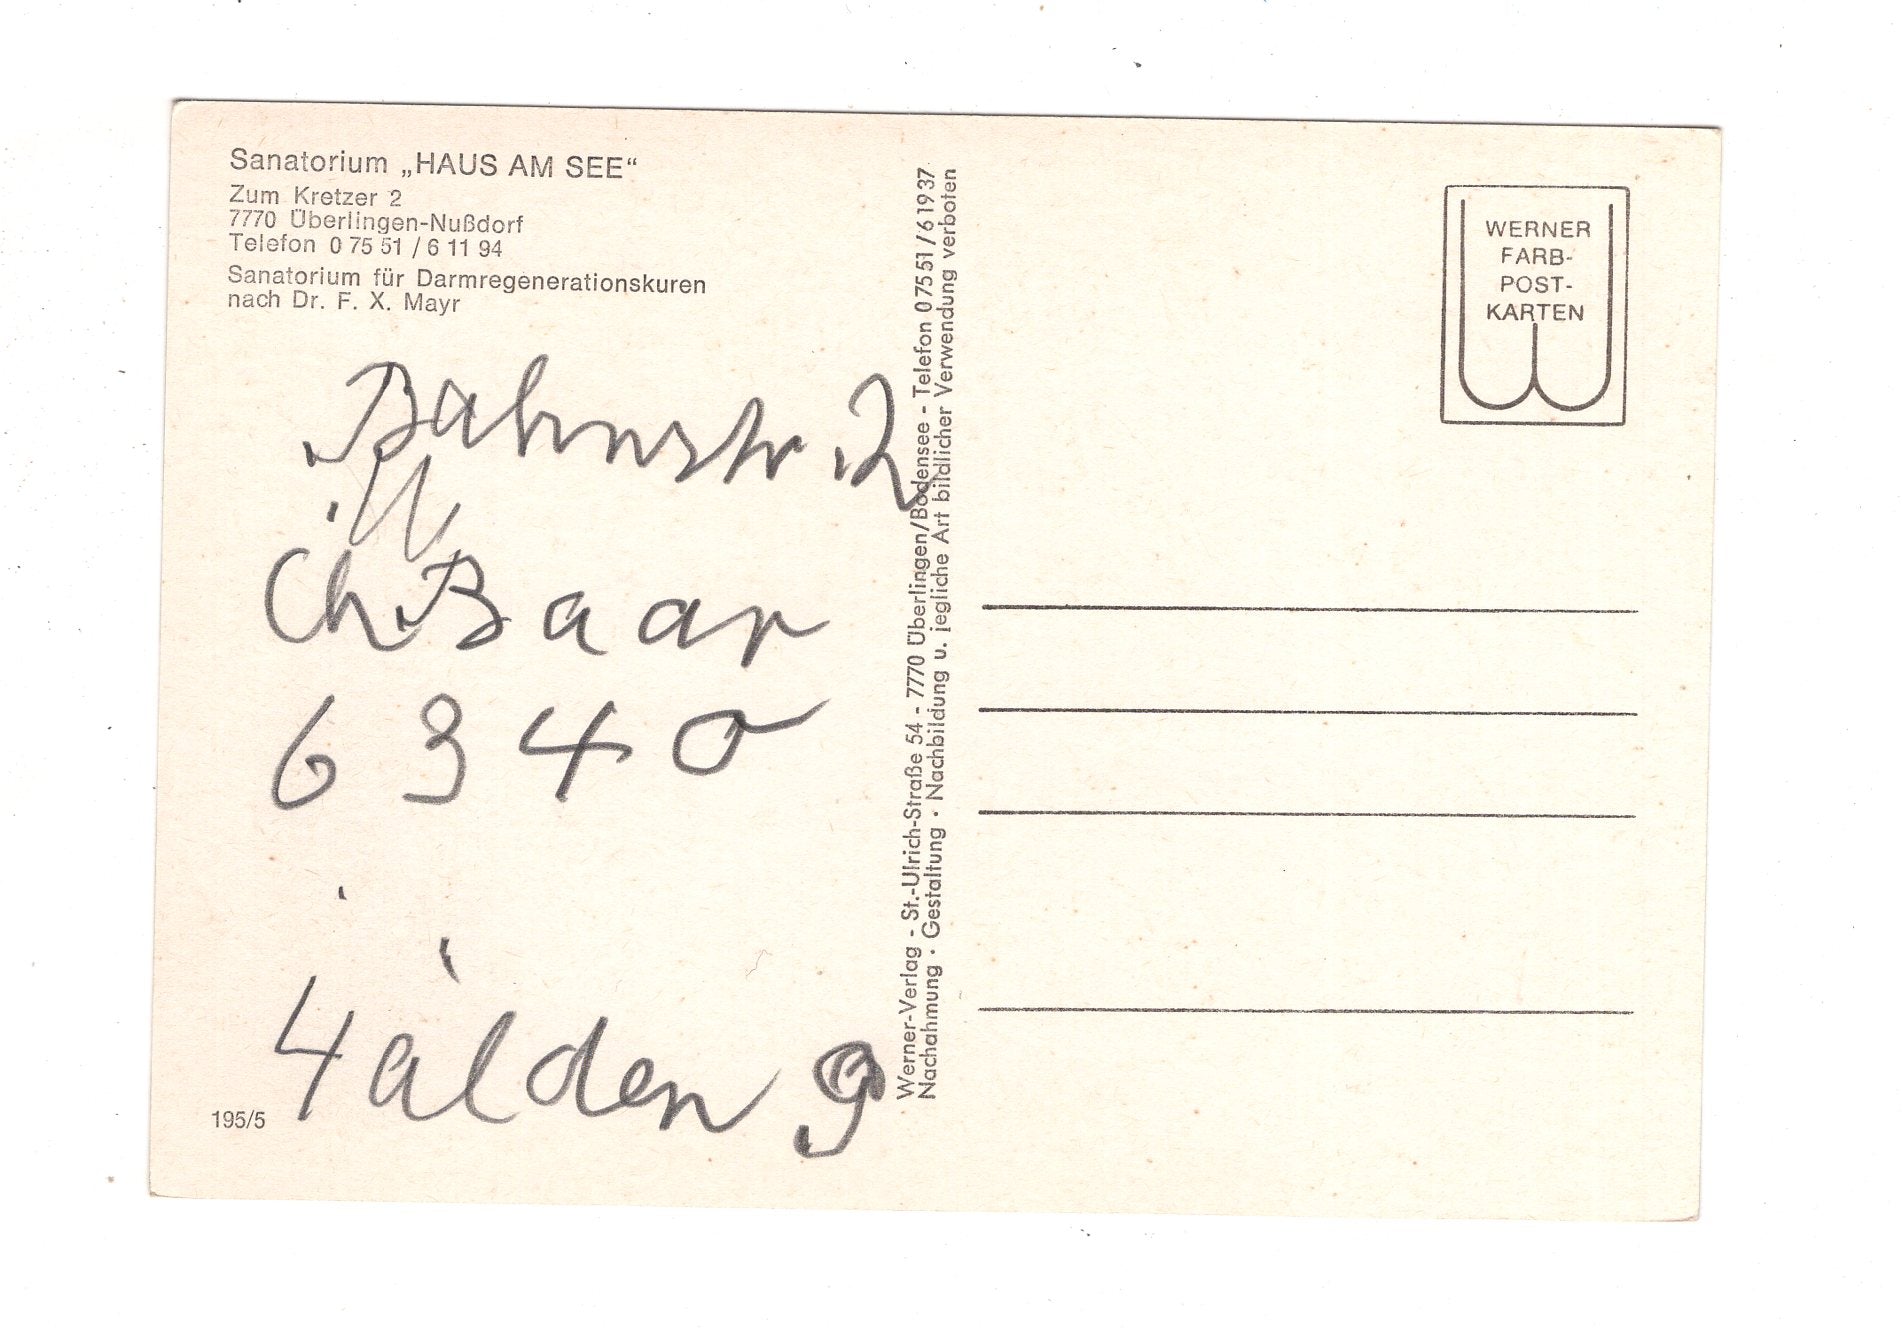 Sanatorium „HAUS AM SEE“
Zum Kretzer 2
7770 Überlingen-Nußdorf
Telefon 0 75 51 / 6 11 94
Sanatorium für Darmregenerationskuren
nach Dr. F. X. Mayr
Bahnstr 2
Ch Baar
6340
4 alden 9
195/5
Werner-Verlag - St.-Ulrich-Straße 54 - 7770 Überlingen/Bodensee - Telefon 0 75 51 / 6 19 37
Nachahmung · Gestaltung · Nachbildung u. jegliche Art bildlicher Verwendung verboten
WERNER
FARB-
POST-
KARTEN